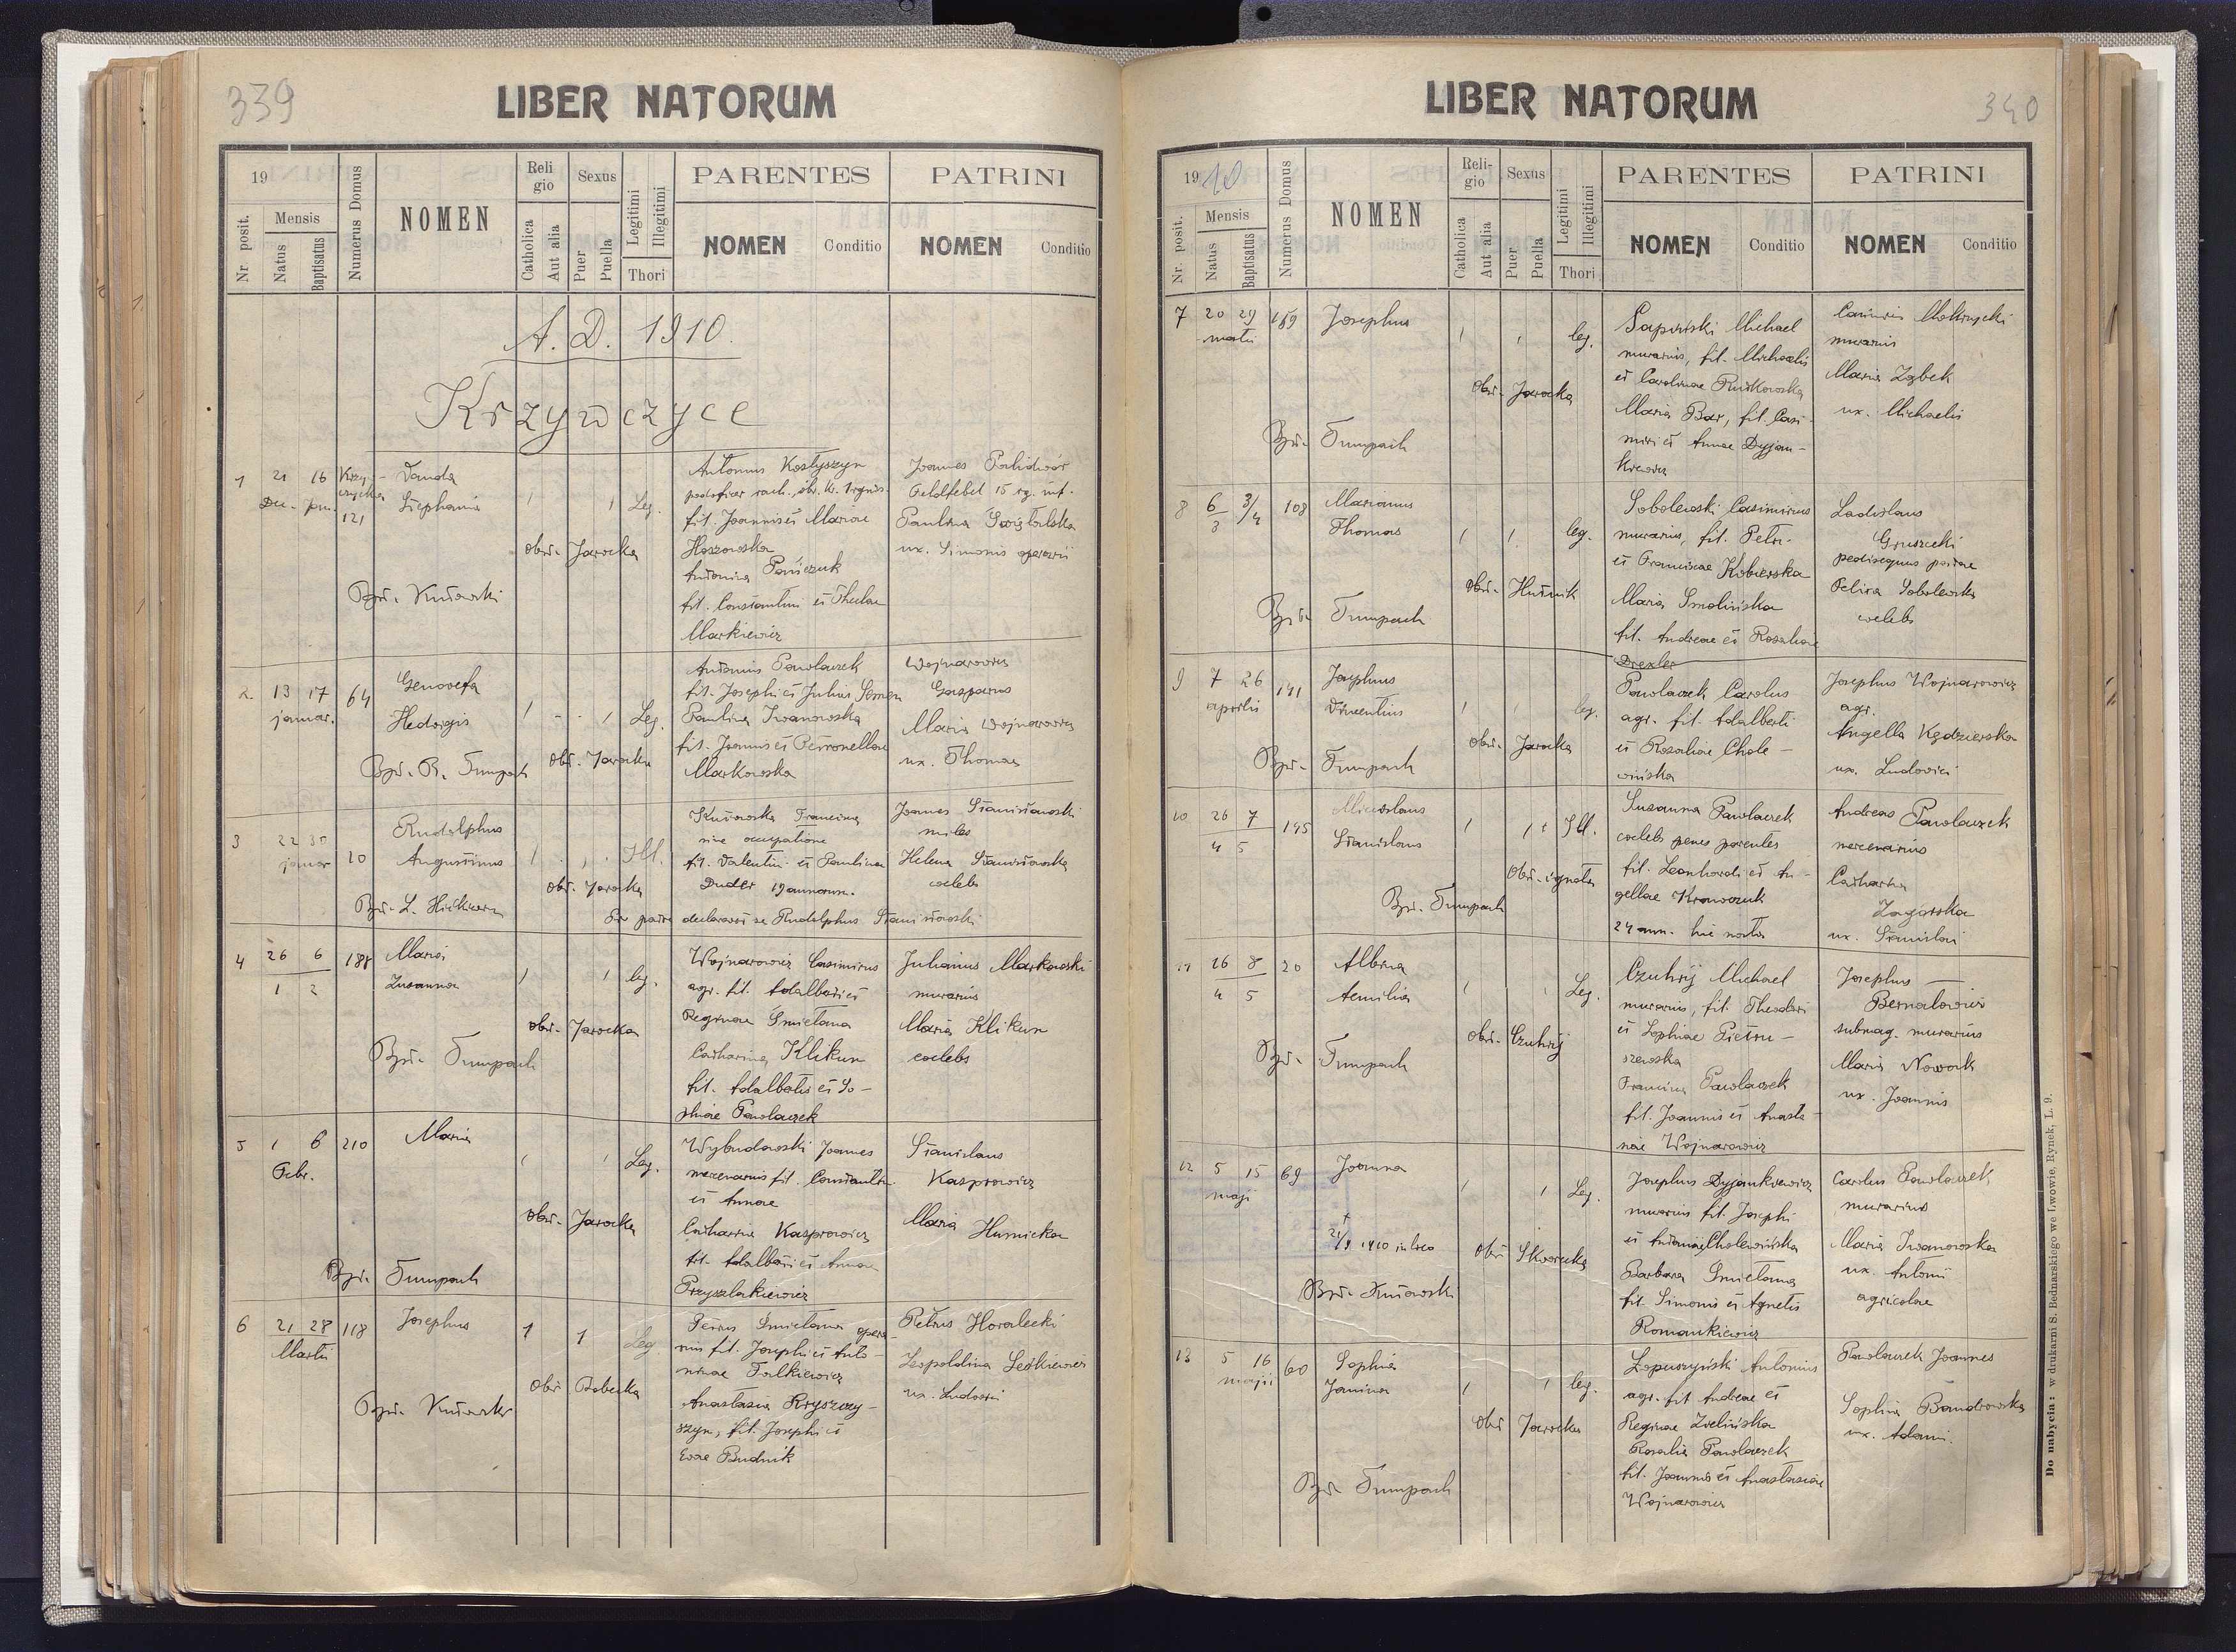 339
LIBER NATORUM
19
Mensis
Nr. posit.
Natus
Baptisatus
Numerus Domus
NOMEN
Religio
Catholica
Aut alia
Sexus
Puer
Puella
Legitimi
Illegitimi
Thori
PARENTES
NOMEN Conditio
PATRINI
NOMEN Conditio
A. D. 1910.
Krzywczyce
1 21 16
Dec. Jan. 121
Stephania
Leg.
Antonius Kostyszyn
fil. Joannis et Mariae
Hoszowska
Antonina
fil. Constantini et Theclae
Markiewicz
Joannes
Paulina
ux. Simonis operarii
Obst. Jarocka
Bpt. Kutowski
2 13 17 64
januar.
Genovefa
Hedvigis
Leg.
Antonius Pawlaczek
fil. Josephi et Julius
Paulina Iwanowska
fil. Joannis et Petronellae
Markowska
Wojnarowicz
Gasparus
Maria Wojnarowicz
ux. Thomae
Obst. Jarocka
Bpt. R. Tumpach
3 22 30 20
januar
Rudolphus
Augustinus
Ill.
Kutowska Francisca
sine occupatione
fil. Valentini et Paulinae
Duder 19 annorum.
Joannes Stanisławski
miles
Helena Stanisławska
coelebs
Obst. Jarocka
Pro patre declaravit se Rudolphus Stanisławski
4 26 6 188
1 2
Maria
Zusanna
leg.
Wojnarowicz Casimirus
agr. fil. Adalberti et
Reginae Smietana
Catharina Klikun
fil. Adalberti et So-
phiae Pawlaczek
Julianus Markowski
murarius
Maria Klikun
coelebs
Obst. Jarocka
Bpt. Tumpach
5 1 6 210
Febr.
Maria
Leg.
Wybudowski Joannes
mercenarius fil. Constantini
et Annae
Catharina Kasprowicz
fil. Adalberti et Annae
Przyszlakiewicz
Stanislaus
Kasprowicz
Maria Humicka
Obst. Jarocka
Bpt. Tumpach
6 21 28 118
Martii
Josephus
1 1 Leg.
Petrus Smietana opera-
rius fil. Josephi et Anto-
ninae Falkiewicz
Anastasia Kryszczy-
szyn, fil. Josephi et
Evae Budnik
Petrus Horalecki
Leopoldina Leśkiewicz
ux. Ludovici
Obst. Babecka
Bpt. Kutowski
LIBER NATORUM
340
1910
Mensis
Nr. posit.
Natus
Baptisatus
Numerus Domus
NOMEN
Religio
Catholica
Aut alia
Sexus
Puer
Puella
Legitimi
Illegitimi
Thori
PARENTES
NOMEN Conditio
PATRINI
NOMEN Conditio
7 20 29 159
martii
Josephus
leg.
Sapiński Michael
murarius, fil. Michaelis
et Carolinae Rutkowska
Maria Bar, fil. Casi-
miri et Annae Dyjan-
kiewicz
murarius
Maria Ząbek
ux. Michaelis
Obst. Jarocka
Bpt. Tumpach
8 6/3 3/4 108
Marianus
Thomas
leg.
Sobolewski Casimirus
murarius, fil. Petri
et Franciscae Kobierska
Maria Smolińska
fil. Andreae et Rosaliae
Drexler
Ladislaus
Gruszecki
Felixa Sobolewska
coelebs
Obst. Hutnik
Bpt. Tumpach
9 7 26 141
aprilis
Josephus
Vincentius
leg.
Pawlaczek Carolus
agr. fil. Adalberti
et Rosaliae Chole-
wińska
Josephus Wojnarowicz
agr.
Angella Kędzierska
ux. Ludovici
Obst. Jarocka
Bpt. Tumpach
10 26 7 195
4 5
Miecislaus
Stanislaus
Ill.
Susanna Pawlaczek
coelebs penes parentes
fil. Leonhardi et An-
gellae Krawczuk
24 ann. hic nata
Andreas Pawlaczek
mercenarius
Catharina
Zagórska
ux. Stanislai
Obst. ignota
Bpt. Tumpach
11 16 8 20
4 5
Albina
Aemilia
Leg.
Czuhrij Michael
murarius, fil. Theodori
et Sophiae Pietru-
szewska
Francisca Pawlaczek
fil. Joannis et Anasta-
siae Wojnarowicz
Josephus
Bernatowicz
submag. murarius
Maria Nowak
ux. Joannis
Obst. Czuhrij
Bpt. Tumpach
12 5 15 69
maji
Joanna
Leg.
Josephus Dyjankiewicz
murarius fil. Josephi
et Antoniae Cholewińska
Barbara Smietana
fil. Simonis et Agnetis
Romankiewicz
Carolus Pawlaczek
murarius
Maria Iwanowska
ux. Antonii
agricolae
Obst. Skorecka
Bpt. Kutowski
13 5 16 60
maji
Sophia
Janina
leg.
Łopuszyński Antonius
agr. fil. Andreae et
Reginae Zielińska
Rosalia Pawlaczek
fil. Joannis et Anastasiae
Wojnarowicz
Pawlaczek Joannes
Sophia Bandrowska
ux. Adami.
Obst. Jarocka
Bpt. Tumpach
Do nabycia: w drukarni S. Bednarskiego we Lwowie, Rynek, L. 9.